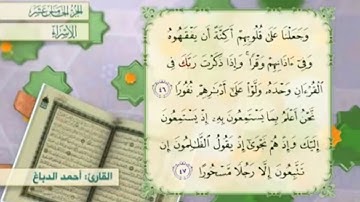 الجزء الخامس عشر
الإسراء
وَجَعَلْنَا عَلَىٰ قُلُوبِهِمْ أَكِنَّةً أَن يَفْقَهُوهُ
وَفِىٓ ءَاذَانِهِمْ وَقْرًا ۚ وَإِذَا ذَكَرْتَ رَبَّكَ فِى
ٱلْقُرْءَانِ وَحْدَهُۥ وَلَّوْا۟ عَلَىٰٓ أَدْبَٰرِهِمْ نُفُورًا ﴿٤٦﴾
نَّحْنُ أَعْلَمُ بِمَا يَسْتَمِعُونَ بِهِۦٓ إِذْ يَسْتَمِعُونَ
إِلَيْكَ وَإِذْ هُمْ نَجْوَىٰٓ إِذْ يَقُولُ ٱلظَّٰلِمُونَ إِن
تَتَّبِعُونَ إِلَّا رَجُلًا مَّسْحُورًا ﴿٤٧﴾
القارئ: أحمد الدباغ